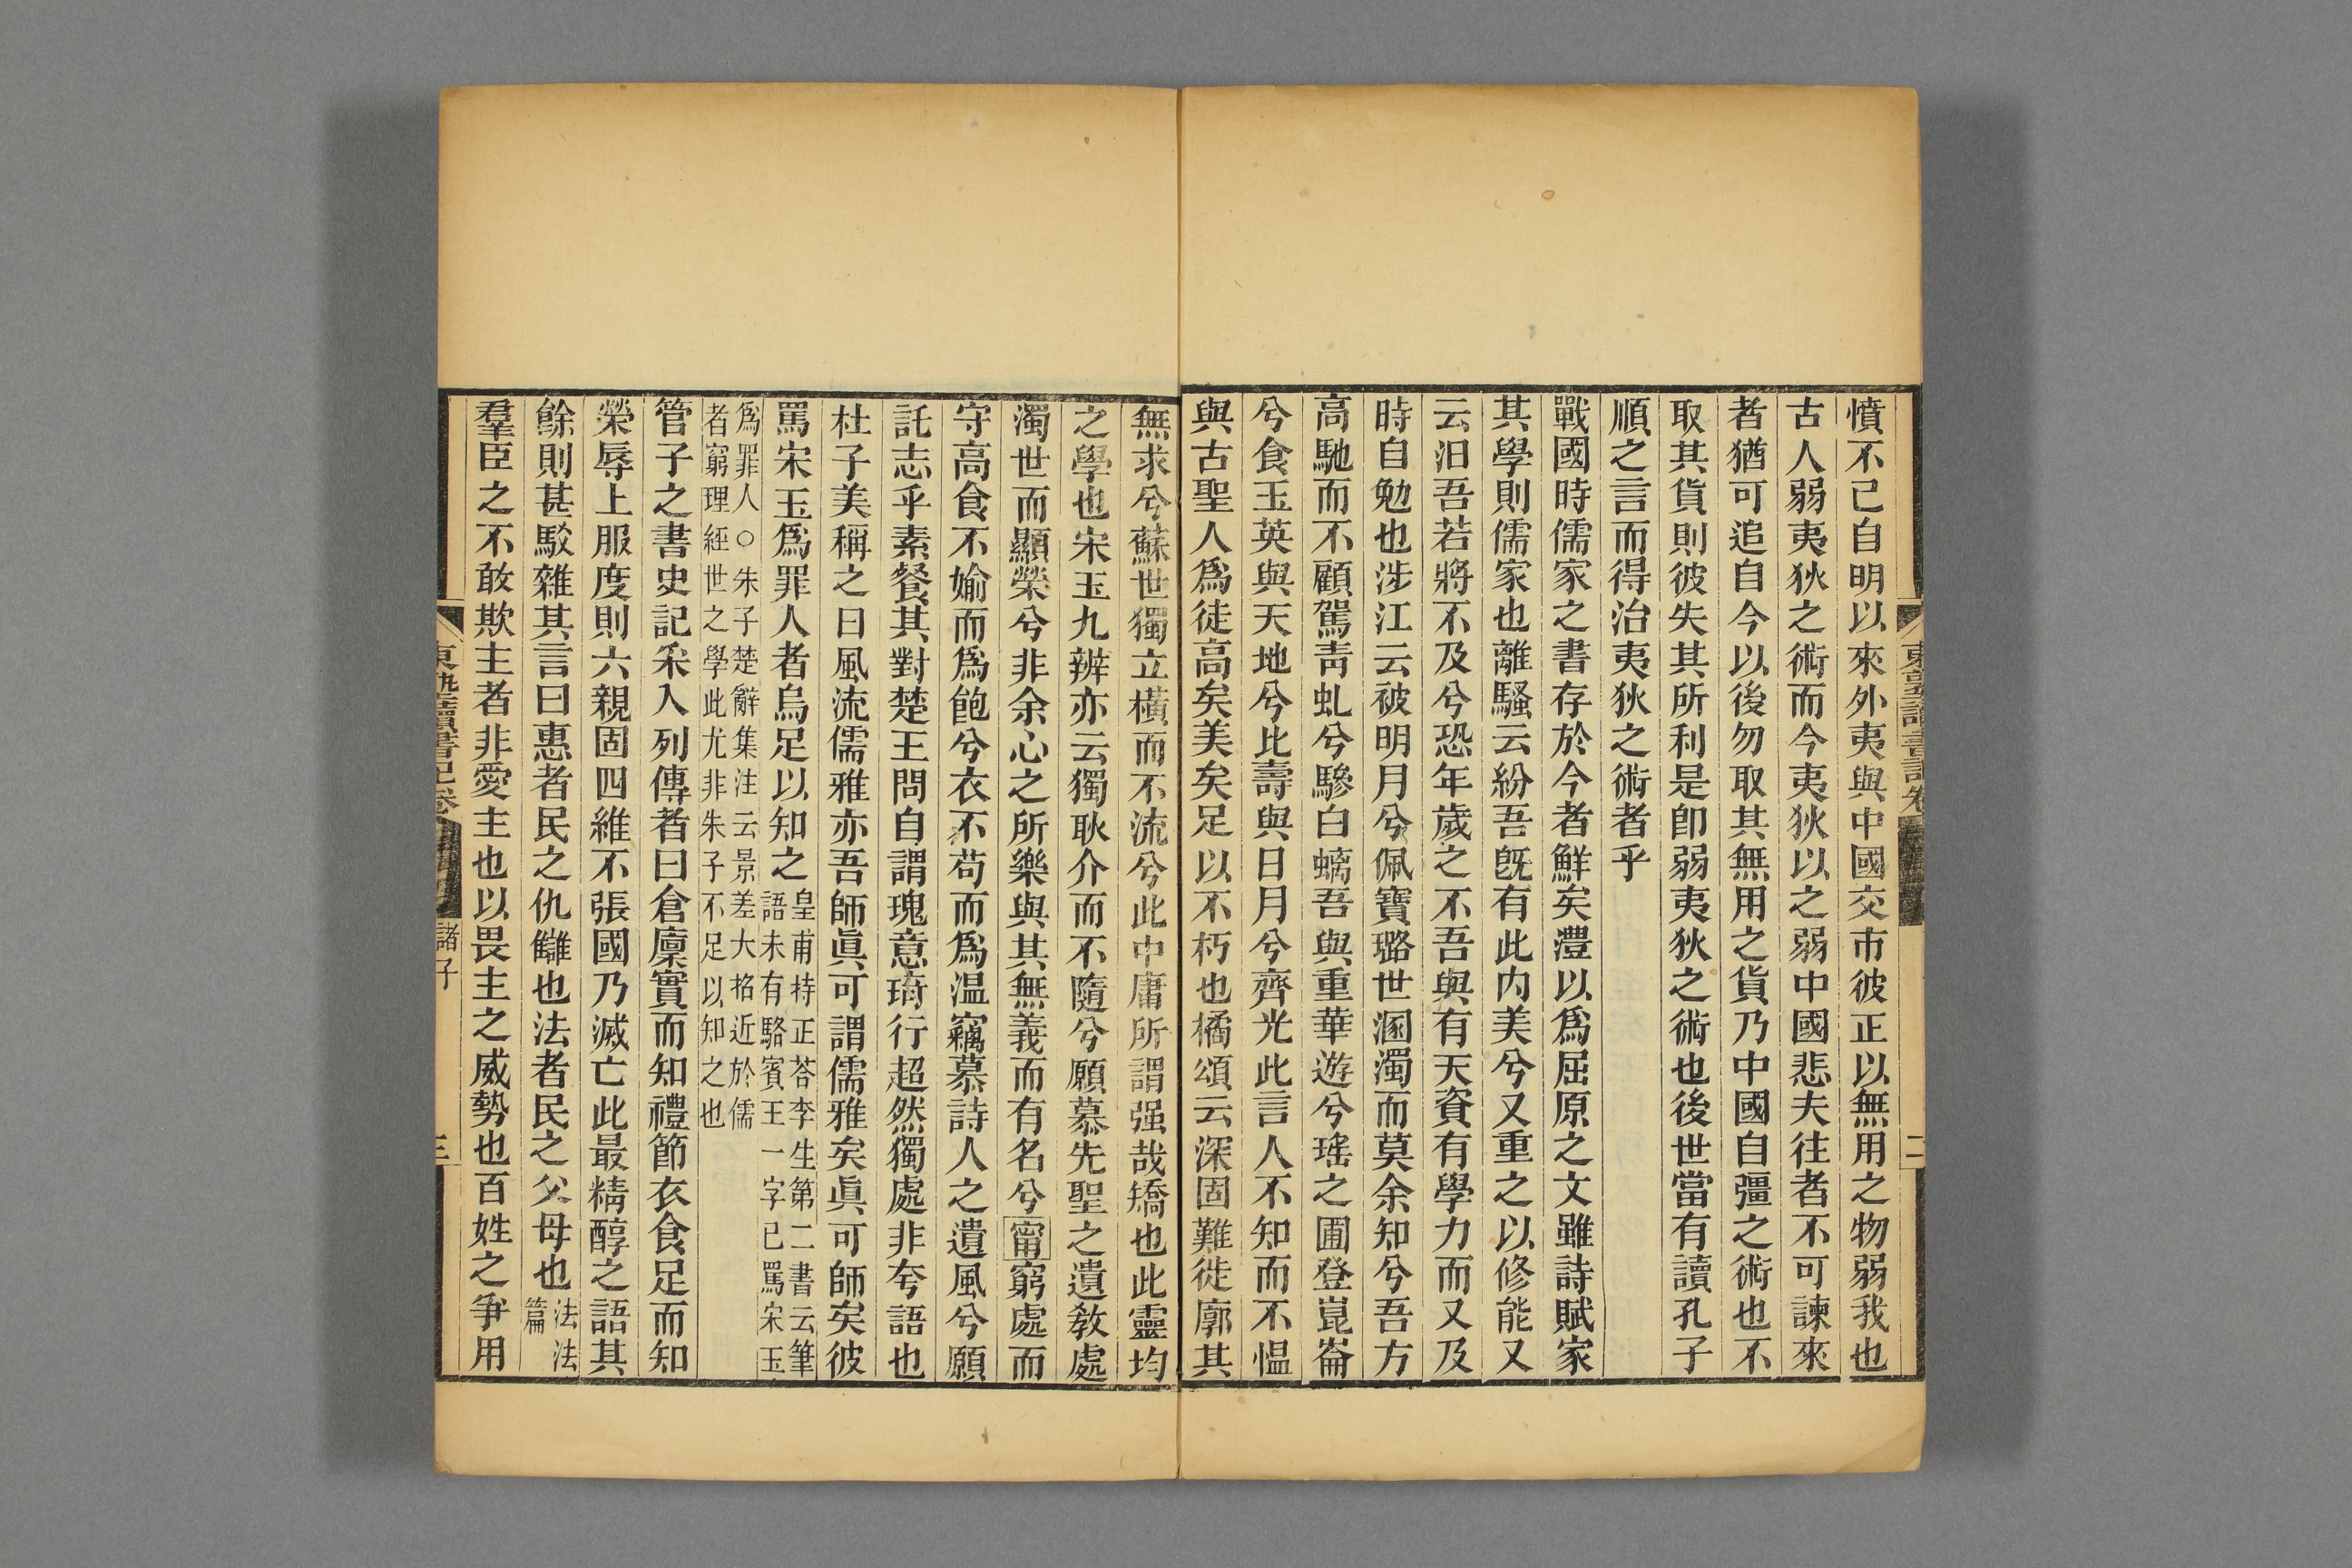 憤不已自明以來外夷與中國交市彼正以無用之物弱我也
古人弱夷狄之術而今夷狄以之弱中國悲夫往者不可諫來
者猶可追自今以後勿取其無用之貨乃中國自彊之術也不
取其貨則彼失其所利是卽弱夷狄之術也後世當有讀孔子
順之言而得治夷狄之術者乎
戰國時儒家之書存於今者鮮矣澧以爲屈原之文雖詩賦家
其學則儒家也離騷云紛吾旣有此內美兮又重之以修能又
云汩吾若將不及兮恐年歲之不吾與有天資有學力而又及
時自勉也涉江云被明月兮佩寶璐世溷濁而莫余知兮吾方
高馳而不顧駕靑虬兮驂白螭吾與重華遊兮瑤之圃登崑崙
兮食玉英與天地兮比壽與日月兮齊光此言人不知而不慍
與古聖人爲徒高矣美矣足以不朽也橘頌云深固難徙廓其
無求兮蘇世獨立橫而不流兮此中庸所謂强哉矯也此靈均
之學也宋玉九辨亦云獨耿介而不隨兮願慕先聖之遺敎處
濁世而顯榮兮非余心之所樂與其無義而有名兮甯窮處而
守高食不媮而爲飽兮衣不苟而爲溫竊慕詩人之遺風兮願
託志乎素餐其對楚王問自謂瑰意琦行超然獨處非夸語也
杜子美稱之曰風流儒雅亦吾師眞可謂儒雅矣眞可師矣彼
罵宋玉爲罪人者烏足以知之
皇甫持正荅李生第二書云筆
語未有駱賓王一字已罵宋玉
爲罪人○朱子楚辭集注云景差大招近於儒
者窮理經世之學此尤非朱子不足以知之也
管子之書史記采入列傳者曰倉廩實而知禮節衣食足而知
榮辱上服度則六親固四維不張國乃滅亡此最精醇之語其
餘則甚駁雜其言曰惠者民之仇讎也法者民之父母也
法法
篇
羣臣之不敢欺主者非愛主也以畏主之威勢也百姓之爭用
東塾讀書記卷
諸子
三
東塾讀書記卷
二